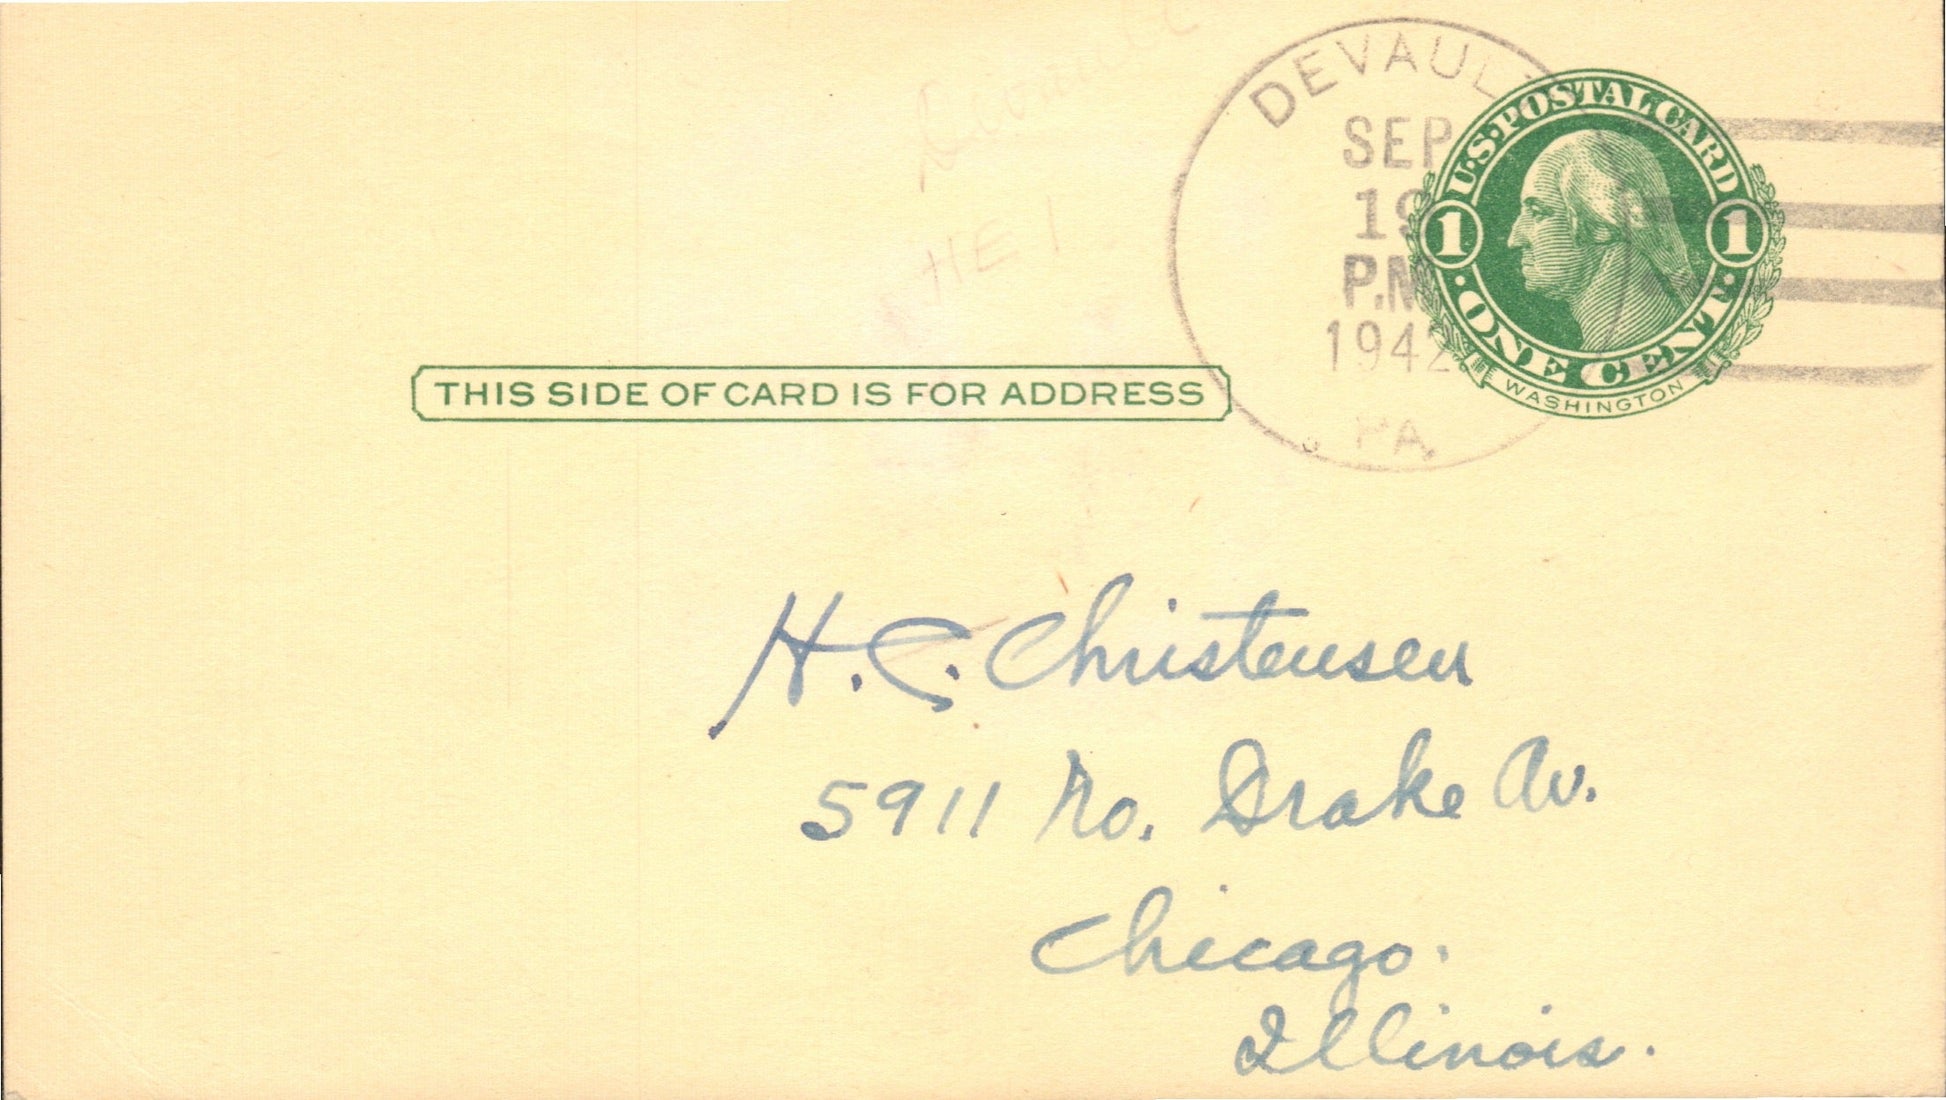 DEVAULT
SEP
19
P.M
1942
PA.
U.S. POSTAL CARD
1 1
ONE CENT
WASHINGTON
HE 1
THIS SIDE OF CARD IS FOR ADDRESS
H. C. Christensen
5911 No. Drake Av.
Chicago.
Illinois.